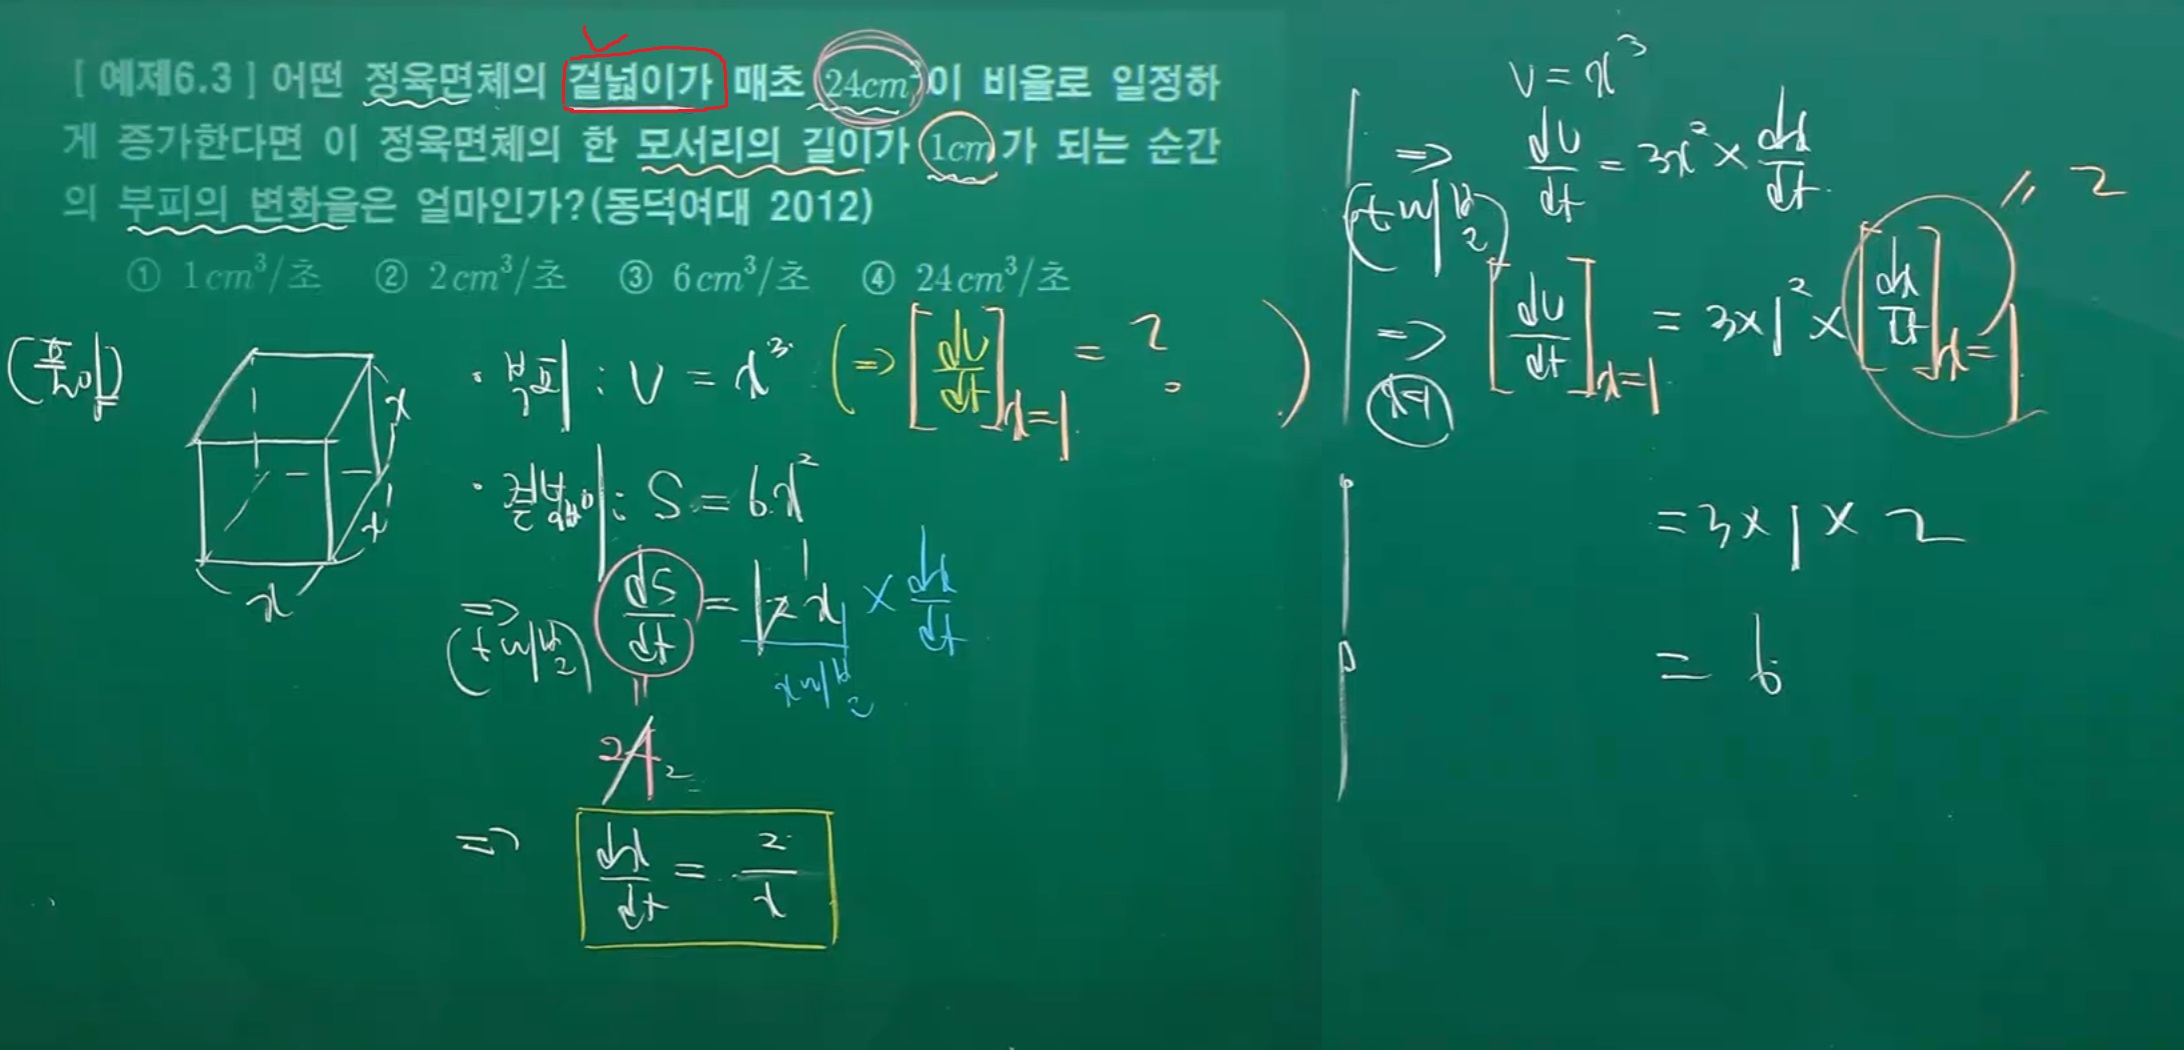 [ 예제6.3 ] 어떤 정육면체의 겉넓이가 매초 24cm²이 비율로 일정하
게 증가한다면 이 정육면체의 한 모서리의 길이가 1cm가 되는 순간
의 부피의 변화율은 얼마인가?(동덕여대 2012)
① 1cm³/초 ② 2cm³/초 ③ 6cm³/초 ④ 24cm³/초
(풀이)
x
x
x
· 부피 : V = x³ (=> [dV/dt]x=1 = ? )
· 겉넓이 : S = 6x²
=> (t에 대한 미분) dS/dt = 12x × dx/dt
24
2
=> dx/dt = 2/x
V = x³
=> dV/dt = 3x² × dx/dt
=> [dV/dt]x=1 = 3×1² × [dx/dt]x=1
x=1
" 2
= 3×1×2
= 6